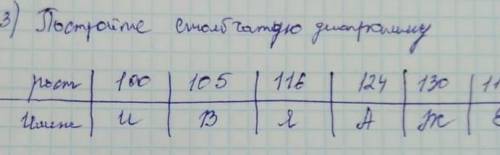 3) Постройте столбчатую диаграмму
рост 100 105 116 124 130 11
Имена И В Я А Ж